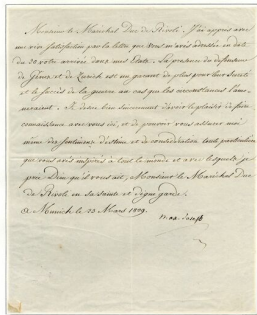 Monsieur le Maréchal Duc de Rivoli. J'ai appris avec
une vive satisfaction par la lettre que vous m'avez adressée en date
du 20 votre arrivée dans mes Etats. La présence du défenseur
de Gênes et de Zurich est un garant de plus pour leur sureté
et le succès de la guerre au cas que les circonstances l'am-
neraient. Je désire bien sincèrement d'avoir le plaisir de faire
connaissance avec vous ici, et de pouvoir vous assurer moi
même des sentimens d'estime et de considération toute particulière
que vous avés inspirés à tout le monde et avec lesquels je
prie Dieu qu'il vous ait, Monsieur le Maréchal Duc
de Rivoli en sa sainte et digne garde.
à Munich le 23 Mars 1809.
Max Joseph